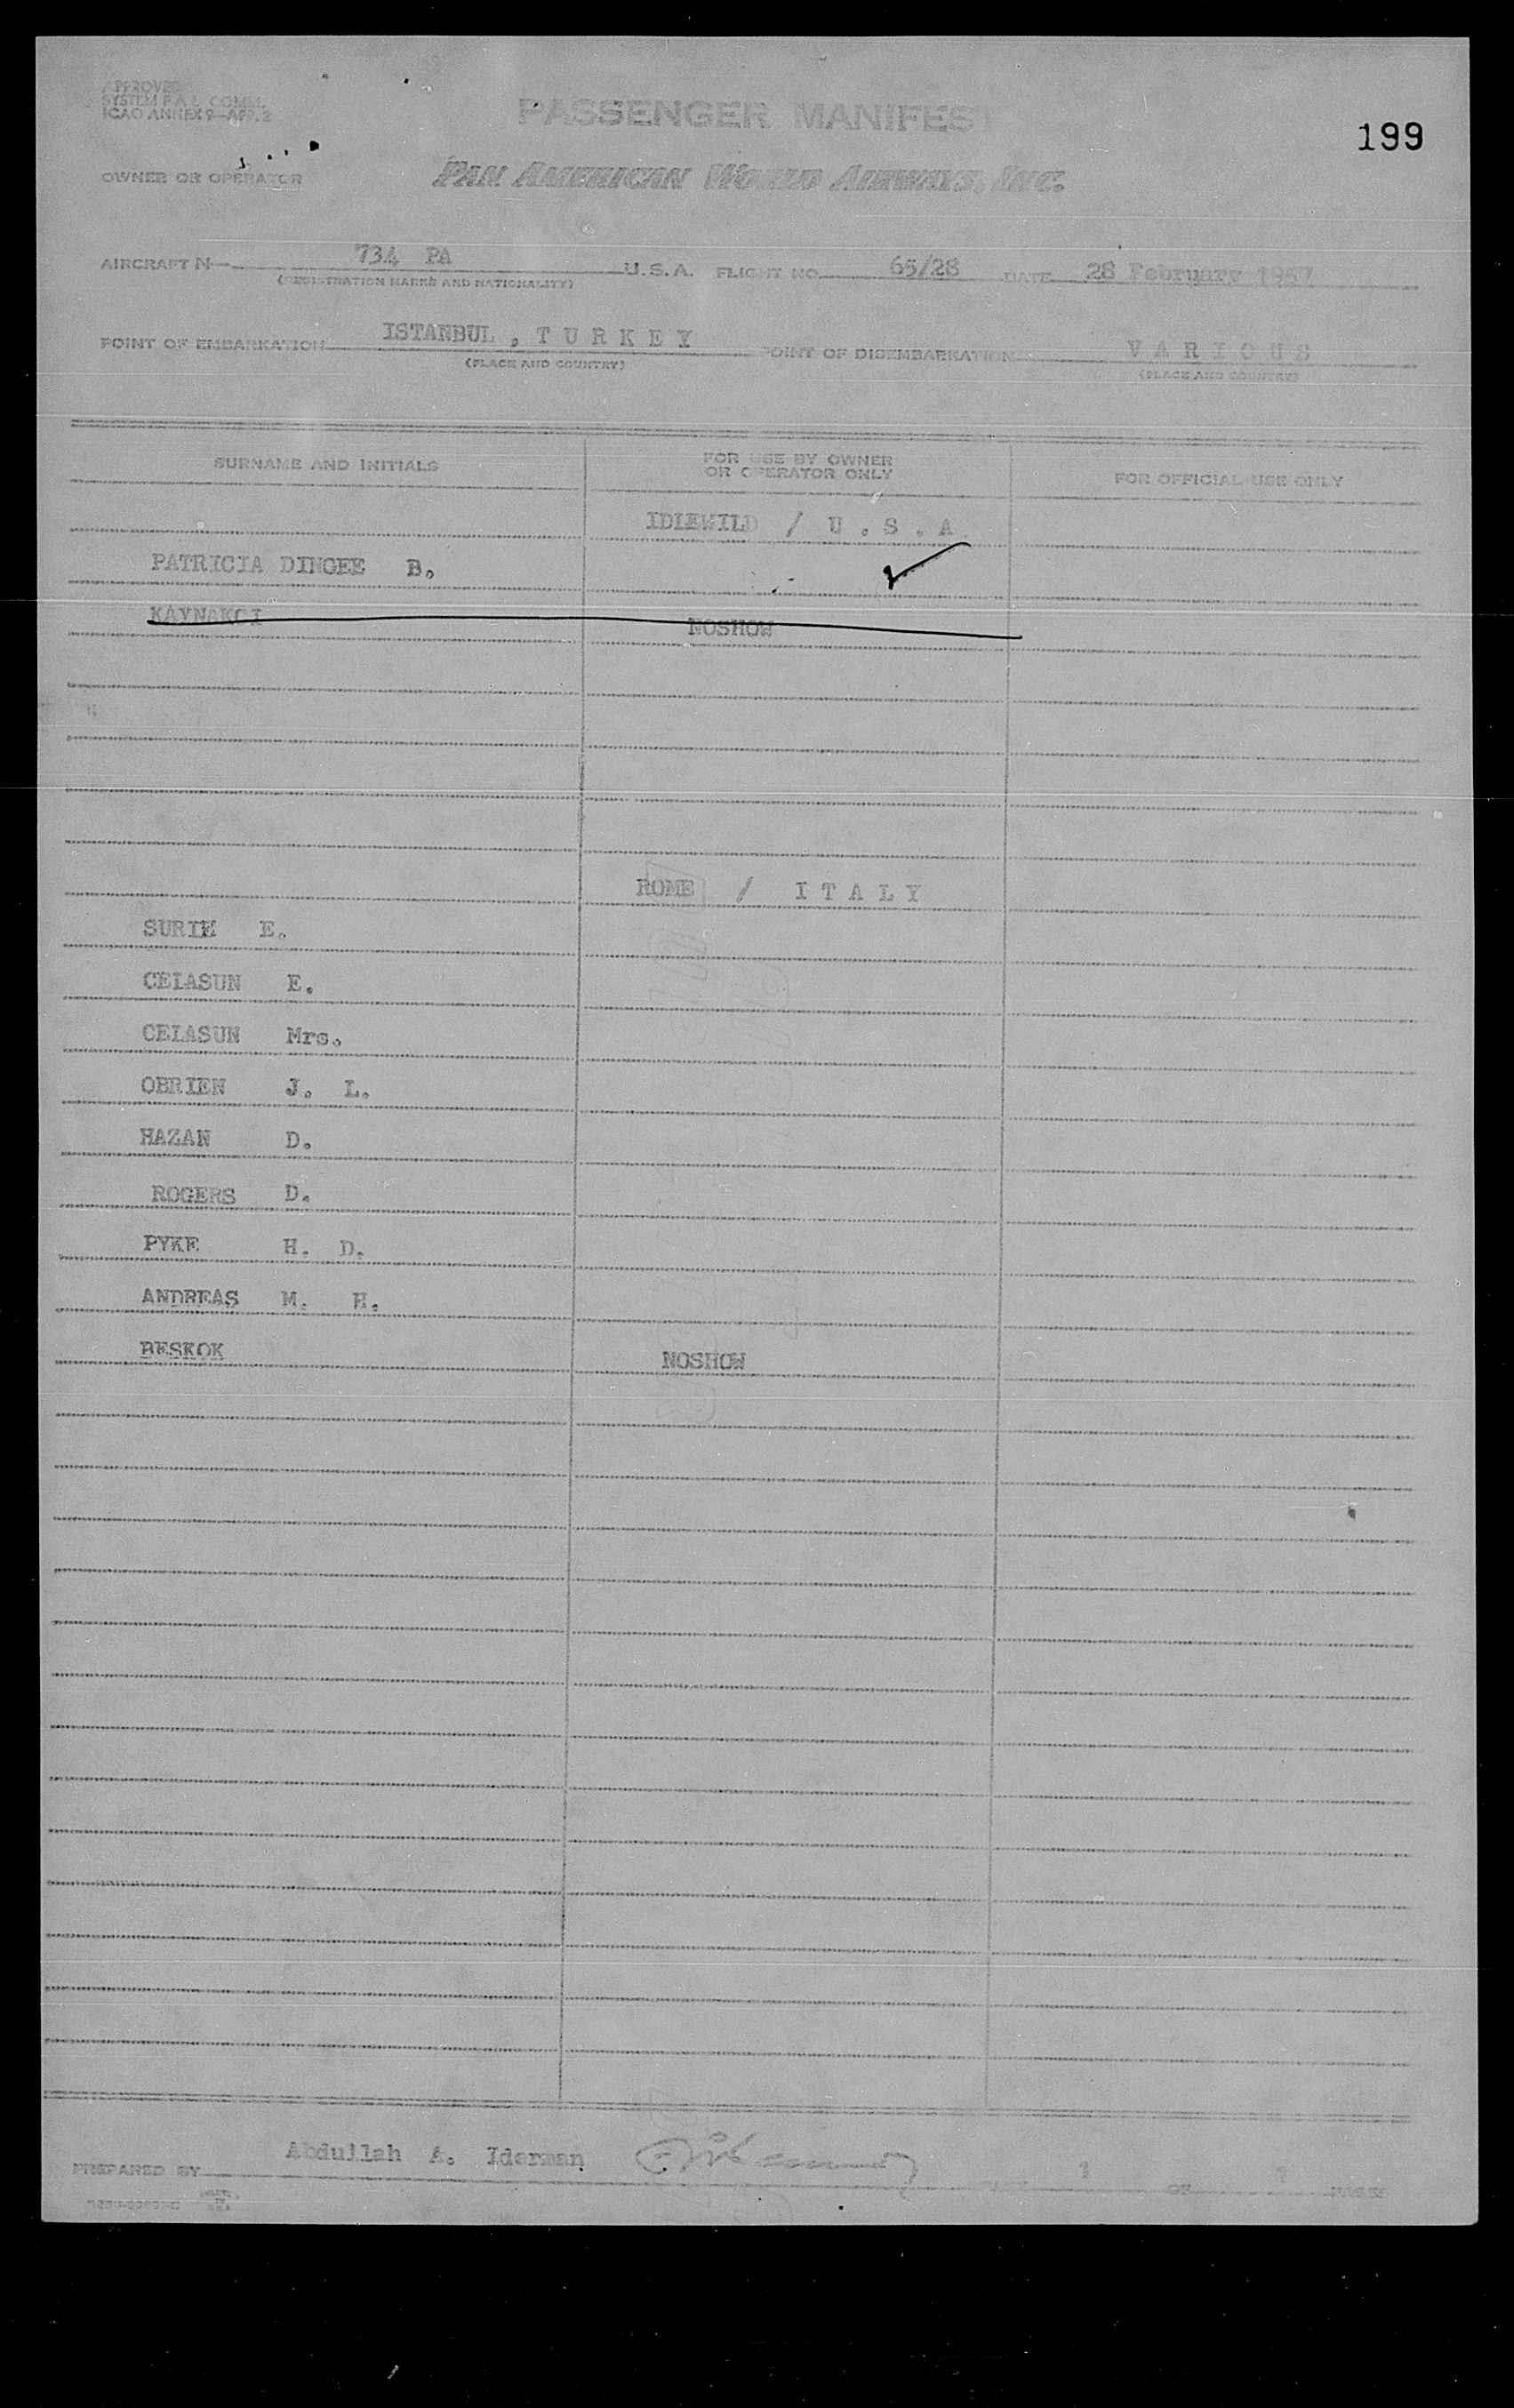 APPROVED
SYSTEM F.A.L. COMM.
ICAO ANNEX 9—APP. 2
PASSENGER MANIFEST
199
OWNER OR OPERATOR PAN AMERICAN WORLD AIRWAYS, INC.
AIRCRAFT N— 734 PA U.S.A. FLIGHT NO. 65/28 DATE 28 February 1957
(REGISTRATION MARKS AND NATIONALITY)
POINT OF EMBARKATION ISTANBUL , T U R K E Y POINT OF DISEMBARKATION V A R I O U S
(PLACE AND COUNTRY) (PLACE AND COUNTRY)
SURNAME AND INITIALS FOR USE BY OWNER OR OPERATOR ONLY FOR OFFICIAL USE ONLY
IDLEWILD / U . S . A
PATRICIA DINGEE B. ✓
KAYNAKCI NOSHOW
ROME / I T A L Y
E.
CELASUN E.
CELASUN Mrs.
OBRIEN J. L.
HAZAN D.
ROGERS D.
PYKE H. D.
ANDREAS M. H.
BESKOK NOSHOW
PREPARED BY Abdullah A. Iderman
1 OF